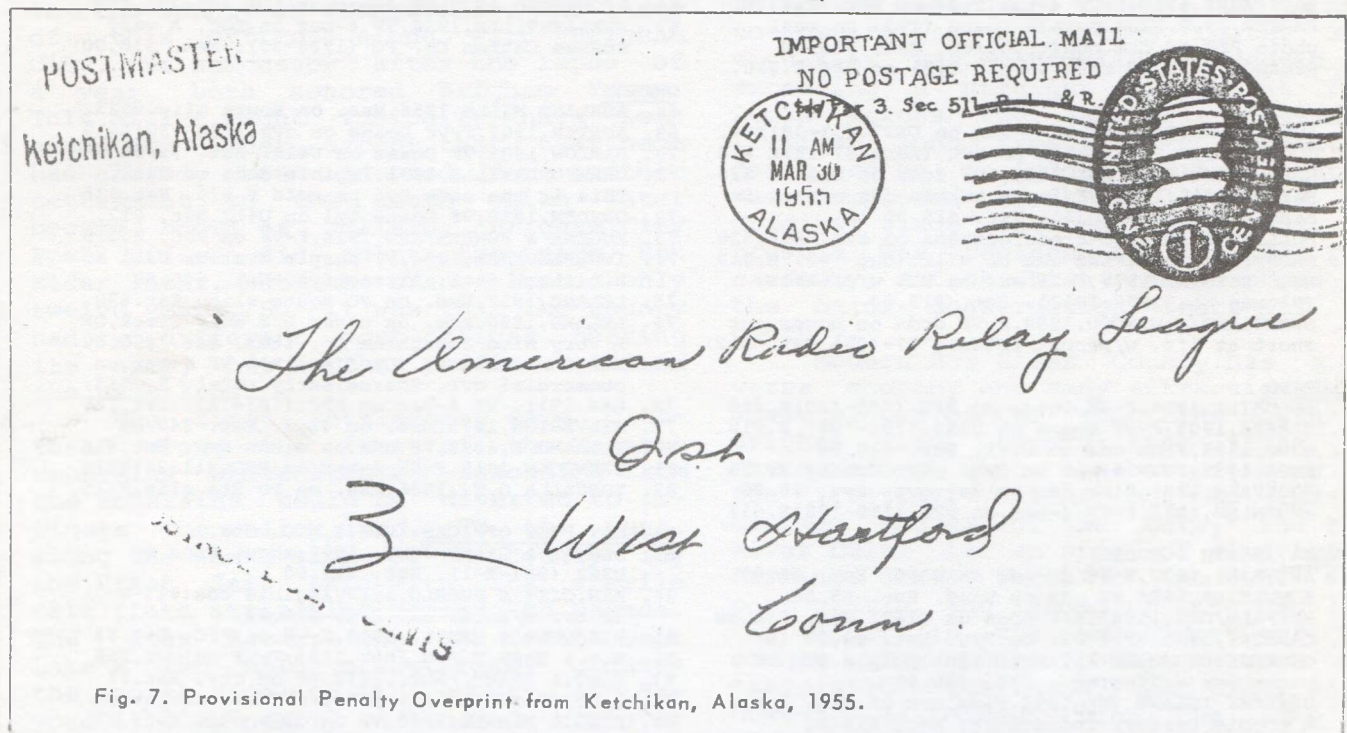 POSTMASTER
Ketchikan, Alaska
IMPORTANT OFFICIAL MAIL
NO POSTAGE REQUIRED
Par 3. Sec 511 & R.
KETCHIKAN
11 AM
MAR 30
1955
ALASKA
UNITED STATES POSTAGE
ONE CENT
1
The American Radio Relay League
Q.s.t
3 — West Hartford
Conn
Fig. 7. Provisional Penalty Overprint from Ketchikan, Alaska, 1955.